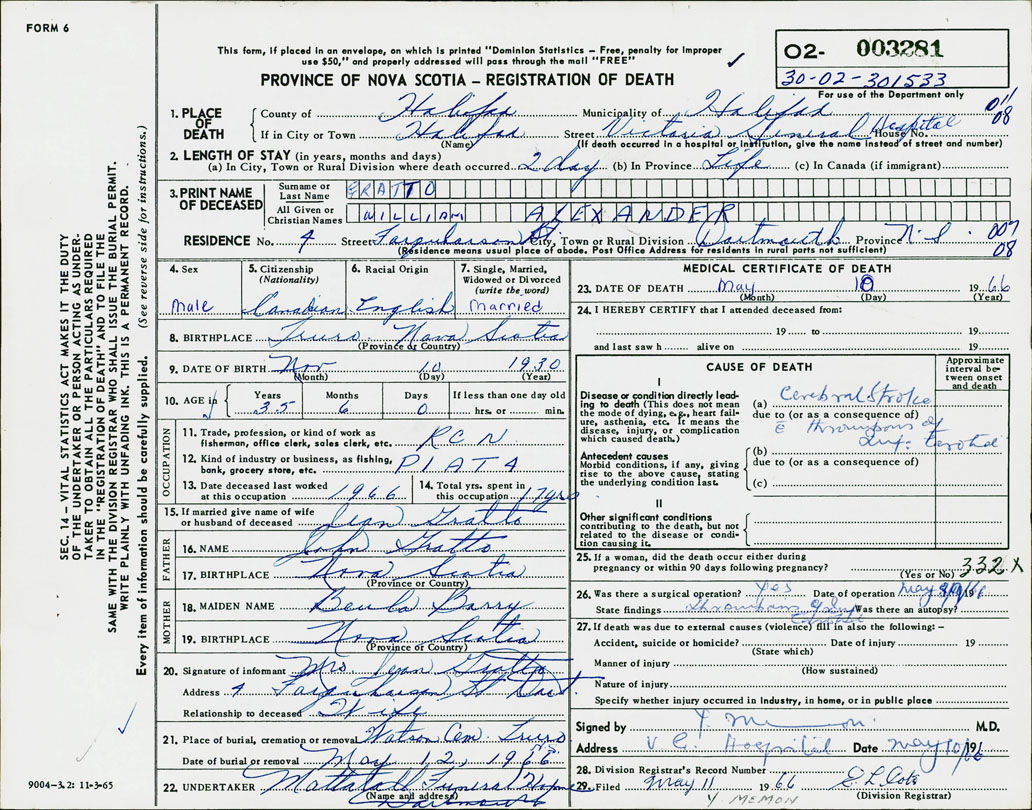 FORM 6
This form, if placed in an envelope, on which is printed "Dominion Statistics – Free, penalty for improper
use $50," and properly addressed will pass through the mail "FREE"
PROVINCE OF NOVA SCOTIA – REGISTRATION OF DEATH
02- 003281
30-02-301533
For use of the Department only
011
08
1. PLACE OF DEATH
County of Halifax Municipality of Halifax
If in City or Town Halifax Street Victoria General Hospital House No.
(Name) (If death occurred in a hospital or institution, give the name instead of street and number)
2. LENGTH OF STAY (in years, months and days)
(a) In City, Town or Rural Division where death occurred 2 day (b) In Province Life (c) In Canada (if immigrant)
3. PRINT NAME OF DECEASED
Surname or Last Name GRATTO
All Given or Christian Names WILLIAM ALEXANDER
RESIDENCE No. 4 Street Farquharson St. City, Town or Rural Division Dartmouth Province N.S. 007
(Residence means usual place of abode. Post Office Address for residents in rural parts not sufficient) 08
4. Sex
Male
5. Citizenship (Nationality)
Canadian
6. Racial Origin
English
7. Single, Married, Widowed or Divorced (write the word)
Married
8. BIRTHPLACE Truro Nova Scotia
(Province or Country)
9. DATE OF BIRTH Nov 10 1930
(Month) (Day) (Year)
10. AGE in
Years 35 Months 6 Days 0
If less than one day old
hrs. or min.
OCCUPATION
11. Trade, profession, or kind of work as fisherman, office clerk, sales clerk, etc. RCN
12. Kind of industry or business, as fishing, bank, grocery store, etc. P1AT4
13. Date deceased last worked at this occupation 1966
14. Total yrs. spent in this occupation 17 yrs
15. If married give name of wife or husband of deceased Jean Gratto
FATHER
16. NAME John Gratto
17. BIRTHPLACE Nova Scotia
(Province or Country)
MOTHER
18. MAIDEN NAME Beula Barry
19. BIRTHPLACE Nova Scotia
(Province or Country)
20. Signature of informant Mrs Jean Gratto
Address 4 Farquharson St Dart.
Relationship to deceased Wife
21. Place of burial, cremation or removal Watson Cem Truro
Date of burial or removal May 12, 1966
22. UNDERTAKER Mattatall Funeral Home
(Name and address)
Dartmouth
MEDICAL CERTIFICATE OF DEATH
23. DATE OF DEATH May 10 1966
(Month) (Day) (Year)
24. I HEREBY CERTIFY that I attended deceased from:
19 to 19
and last saw h alive on 19
CAUSE OF DEATH
Approximate interval between onset and death
I
Disease or condition directly leading to death (This does not mean the mode of dying, e.g., heart failure, asthenia, etc. It means the disease, injury, or complication which caused death.)
(a) Cerebral Stroke
due to (or as a consequence of)
c̄ thrombosis of
Int. Carotid
Antecedent causes
Morbid conditions, if any, giving rise to the above cause, stating the underlying condition last.
(b)
due to (or as a consequence of)
(c)
II
Other significant conditions contributing to the death, but not related to the disease or condition causing it.
25. If a woman, did the death occur either during pregnancy or within 90 days following pregnancy?
(Yes or No) 332 X
26. Was there a surgical operation? Yes Date of operation May 19
State findings Was there an autopsy?
27. If death was due to external causes (violence) fill in also the following: –
Accident, suicide or homicide? Date of injury 19
(State which)
Manner of injury
(How sustained)
Nature of injury
Specify whether injury occurred in industry, in home, or in public place
Signed by Y. Memon M.D.
Address V G Hospital Date May 10/1966
28. Division Registrar's Record Number
29. Filed May 11 1966 E L Cote
(Division Registrar)
Y MEMON
SEC. 14 – VITAL STATISTICS ACT MAKES IT THE DUTY
OF THE UNDERTAKER OR PERSON ACTING AS UNDER-
TAKER TO OBTAIN ALL THE PARTICULARS REQUIRED
IN THE "REGISTRATION OF DEATH" AND TO FILE THE
SAME WITH THE DIVISION REGISTRAR WHO SHALL ISSUE THE BURIAL PERMIT.
WRITE PLAINLY WITH UNFADING INK. THIS IS A PERMANENT RECORD.
Every item of information should be carefully supplied. (See reverse side for instructions.)
9004-3.2: 11-3-65